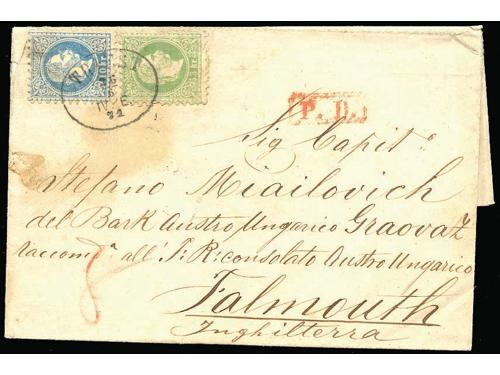 P.D.
Sig Capit°
Stefano Miailovich
del Bark Austro Ungarico Graovaz
raccomᵒ all' I: R: consolato Austro Ungarico
Falmouth
Inghilterra